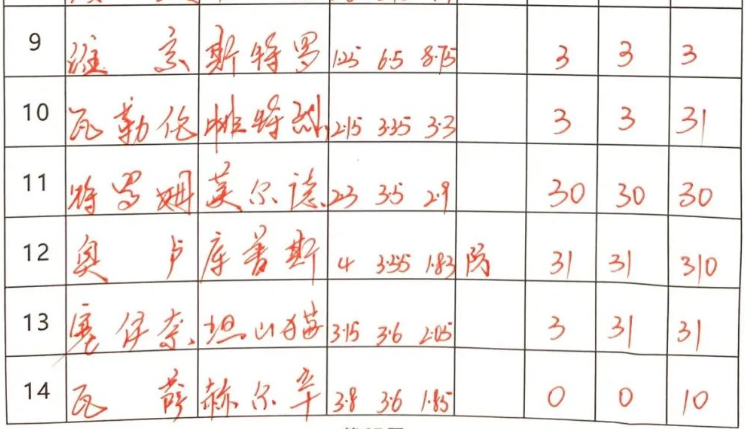 9 维 京 斯特罗 1.25 6.5 8.75 3 3 3
10 瓦勒伦 桃特烈 2.15 3.35 3.3 3 3 31
11 特罗姆 莫尔德 2.3 3.5 2.9 30 30 30
12 奥 卢 库普斯 4 3.55 1.83 防 31 31 310
13 塞伊奈 坦山猫 3.15 3.6 2.05 3 31 31
14 瓦 萨 赫尔辛 3.8 3.6 1.85 0 0 10